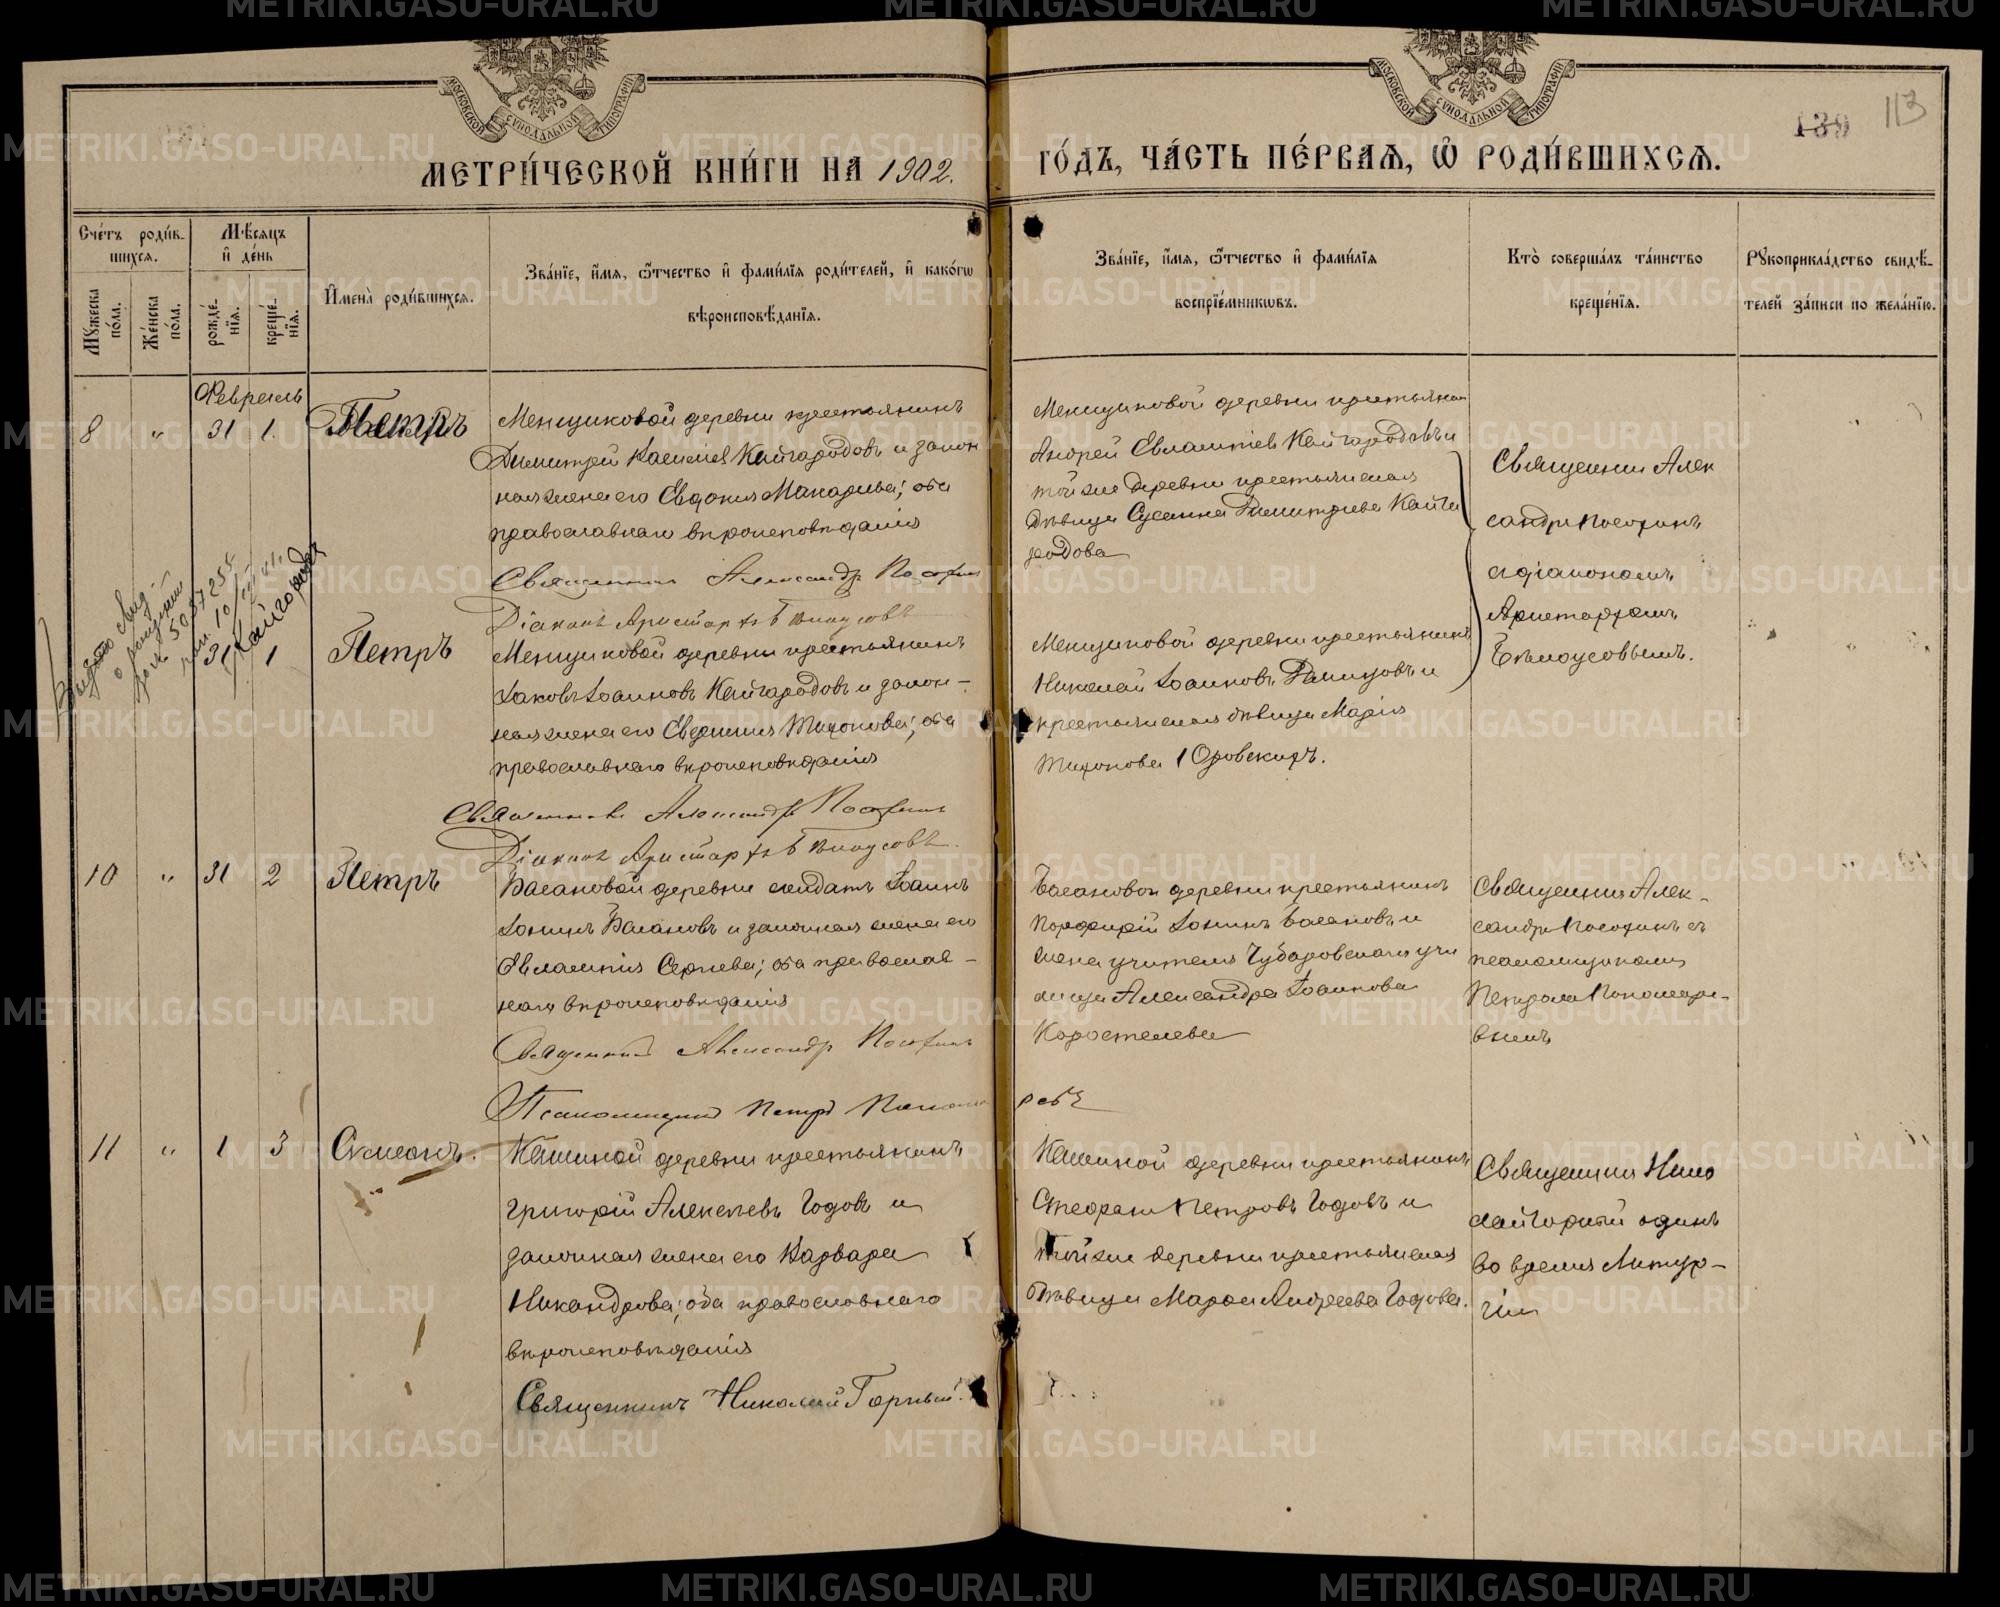 МЕТРИ́ЧЕСКОЙ КНИ́ГИ НА 1902.
ГО́ДЪ, ЧА́СТЬ ПЕ́РВАЯ, Ѡ РОДИ́ВШИХСЯ.
139 113
МОСКОВСКОЙ СѴНОДАЛЬНОЙ ТИПОГРАФІИ
МОСКОВСКОЙ СѴНОДАЛЬНОЙ ТИПОГРАФІИ
Сче́тъ роди́в-
шихся.
Мꙋжеска по́ла.
Же́нска по́ла.
Мѣ́сяцъ
и҆ де́нь
рожде́-
нїя.
креще́-
нїя.
И҆мена̀ роди́вшихся.
Зва́нїе, и҆́мя, ѿ́чество и҆ фами́лїя роди́телей, и҆ како́гѡ
вѣроисповѣ́данїя.
Зва́нїе, и҆́мя, ѿ́чество и҆ фами́лїя
воспрїе́мникѡвъ.
Кто̀ соверша́лъ та́инство
креще́нїя.
Рꙋкоприкла́дство свидѣ́-
телей за́писи по жела́нїю.
Февраль
8 " 31 1 Петръ
Менщиковой деревни крестьянинъ
Димитрій Василіев Кайгородовъ и закон
ная жена его Евдокия Макариева; оба
православнаго вѣроисповѣданія
Священникъ Александръ Посохинъ
Діаконъ Аристархъ Бѣлоусовъ
Менщиковой деревни крестьянин
Андрей Евлампіев Кайгородовъ и
той же деревни крестьянская
дѣвица Сусанна Димитріева Кайго
родова
Священник Алек
сандръ Посохинъ
с діакономъ
Аристархомъ
Бѣлоусовымъ.
31 1 Петръ
Менщиковой деревни крестьянинъ
Іаковъ Іоанновъ Кайгородовъ и закон-
ная жена его Евдокия Тихонова; оба
православнаго вѣроисповѣданія
Священникъ Александръ Посохинъ
Діаконъ Аристархъ Бѣлоусовъ.
Менщиковой деревни крестьянинъ
Николай Іоанновъ и
крестьянская дѣвица Марія
Тихонова
Кайгородов
10 " 31 2 Петръ
Басановой деревни солдатъ Іоаннъ
Іонинъ Басановъ и законная жена его
Евлампия Сергиева; оба православ-
наго вѣроисповѣданія
Священникъ Александръ Посохинъ
Псаломщикъ Петръ Понома ревъ
Басановой деревни крестьянинъ
Порфирій Іонинъ Басановъ и
жена учителя Чубаровскаго учи
лища Александра Іоаннова
Коростелева
Священник Алек-
сандръ Посохинъ съ
псаломщикомъ
Петромъ Пономаре-
вымъ
11 " 1 3 Сѵмеонъ.
Кашиной деревни крестьянинъ
Григорій Алексѣевъ Годовъ и
законная жена его Варвара
Никандрова; оба православнаго
вѣроисповѣданія
Священникъ Николай Горный.
Кашиной деревни крестьянинъ
Стефанъ Петровъ Годовъ и
той же деревни крестьянская
дѣвица Марфа Андреева Годова.
Священник Нико
лай Горный одинъ
во время Литур-
гіи
METRIKI.GASO-URAL.RU